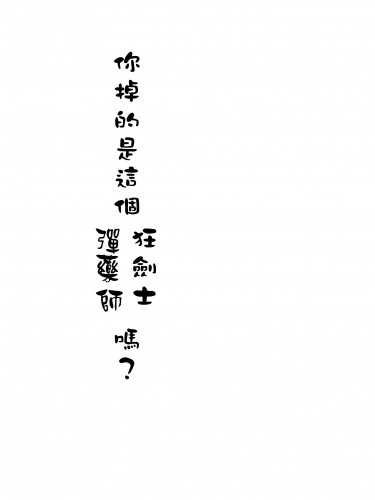 你掉的是這個
狂劍士
彈藥師
嗎?